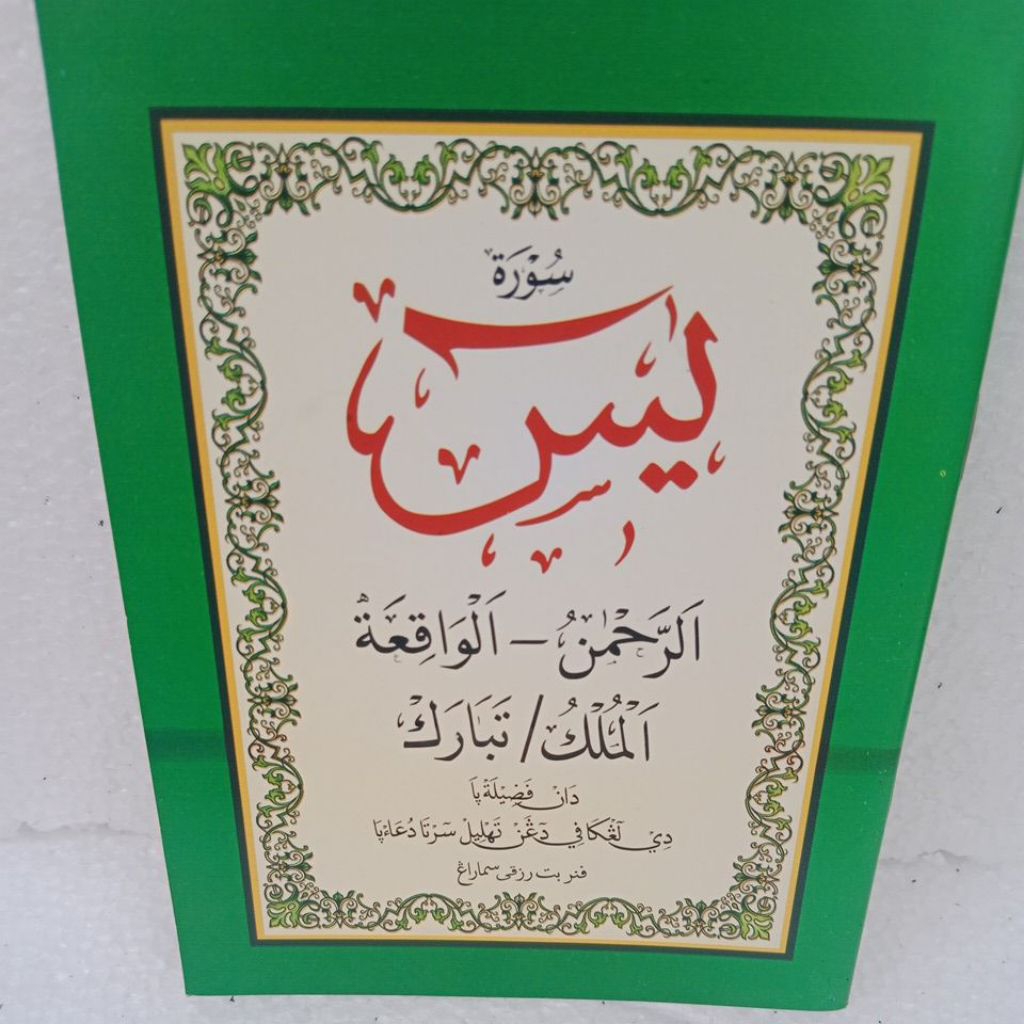 سُوْرَة
يٰسٓ
اَلرَّحْمٰنُ – اَلْوَاقِعَةُ
اَلْمُلْكُ / تَبَارَكْ
دَانْ فَضِيْلَةْ ڽَا
دِيْ لَڠْكَافِي دَڠَنْ تَهْلِيْل سَرْتَا دُعَاءْڽَا
فنربت رزقي سماراڠ